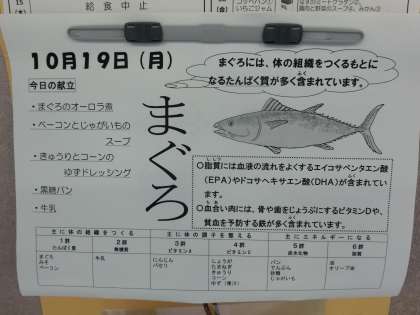 給食中止
コッペパン
いちごジャム
10月19日(月)
今日の献立
・まぐろのオーロラ煮
・ベーコンとじゃがいもの
スープ
・きゅうりとコーンの
ゆずドレッシング
・黒糖パン
・牛乳
まぐろ
まぐろには、体の組織をつくるもとに
なるたんぱく質が多く含まれています。
○脂質には血液の流れをよくするエイコサペンタエン酸
(EPA)やドコサヘキサエン酸(DHA)が含まれてい
ます。
○血合い肉には、骨や歯をじょうぶにするビタミンDや、
貧血を予防する鉄が多く含まれています。
主に体の組織をつくる 主に体の調子を整える 主にエネルギーになる
1群 2群 3群 4群 5群 6群
たんぱく質 無機質 ビタミンA ビタミンC 炭水化物 脂質
まぐろ 牛乳 にんじん しょうが パン 油
みそ パセリ たまねぎ でんぷん オリーブ油
ベーコン きゅうり 砂糖
コーン じゃがいも